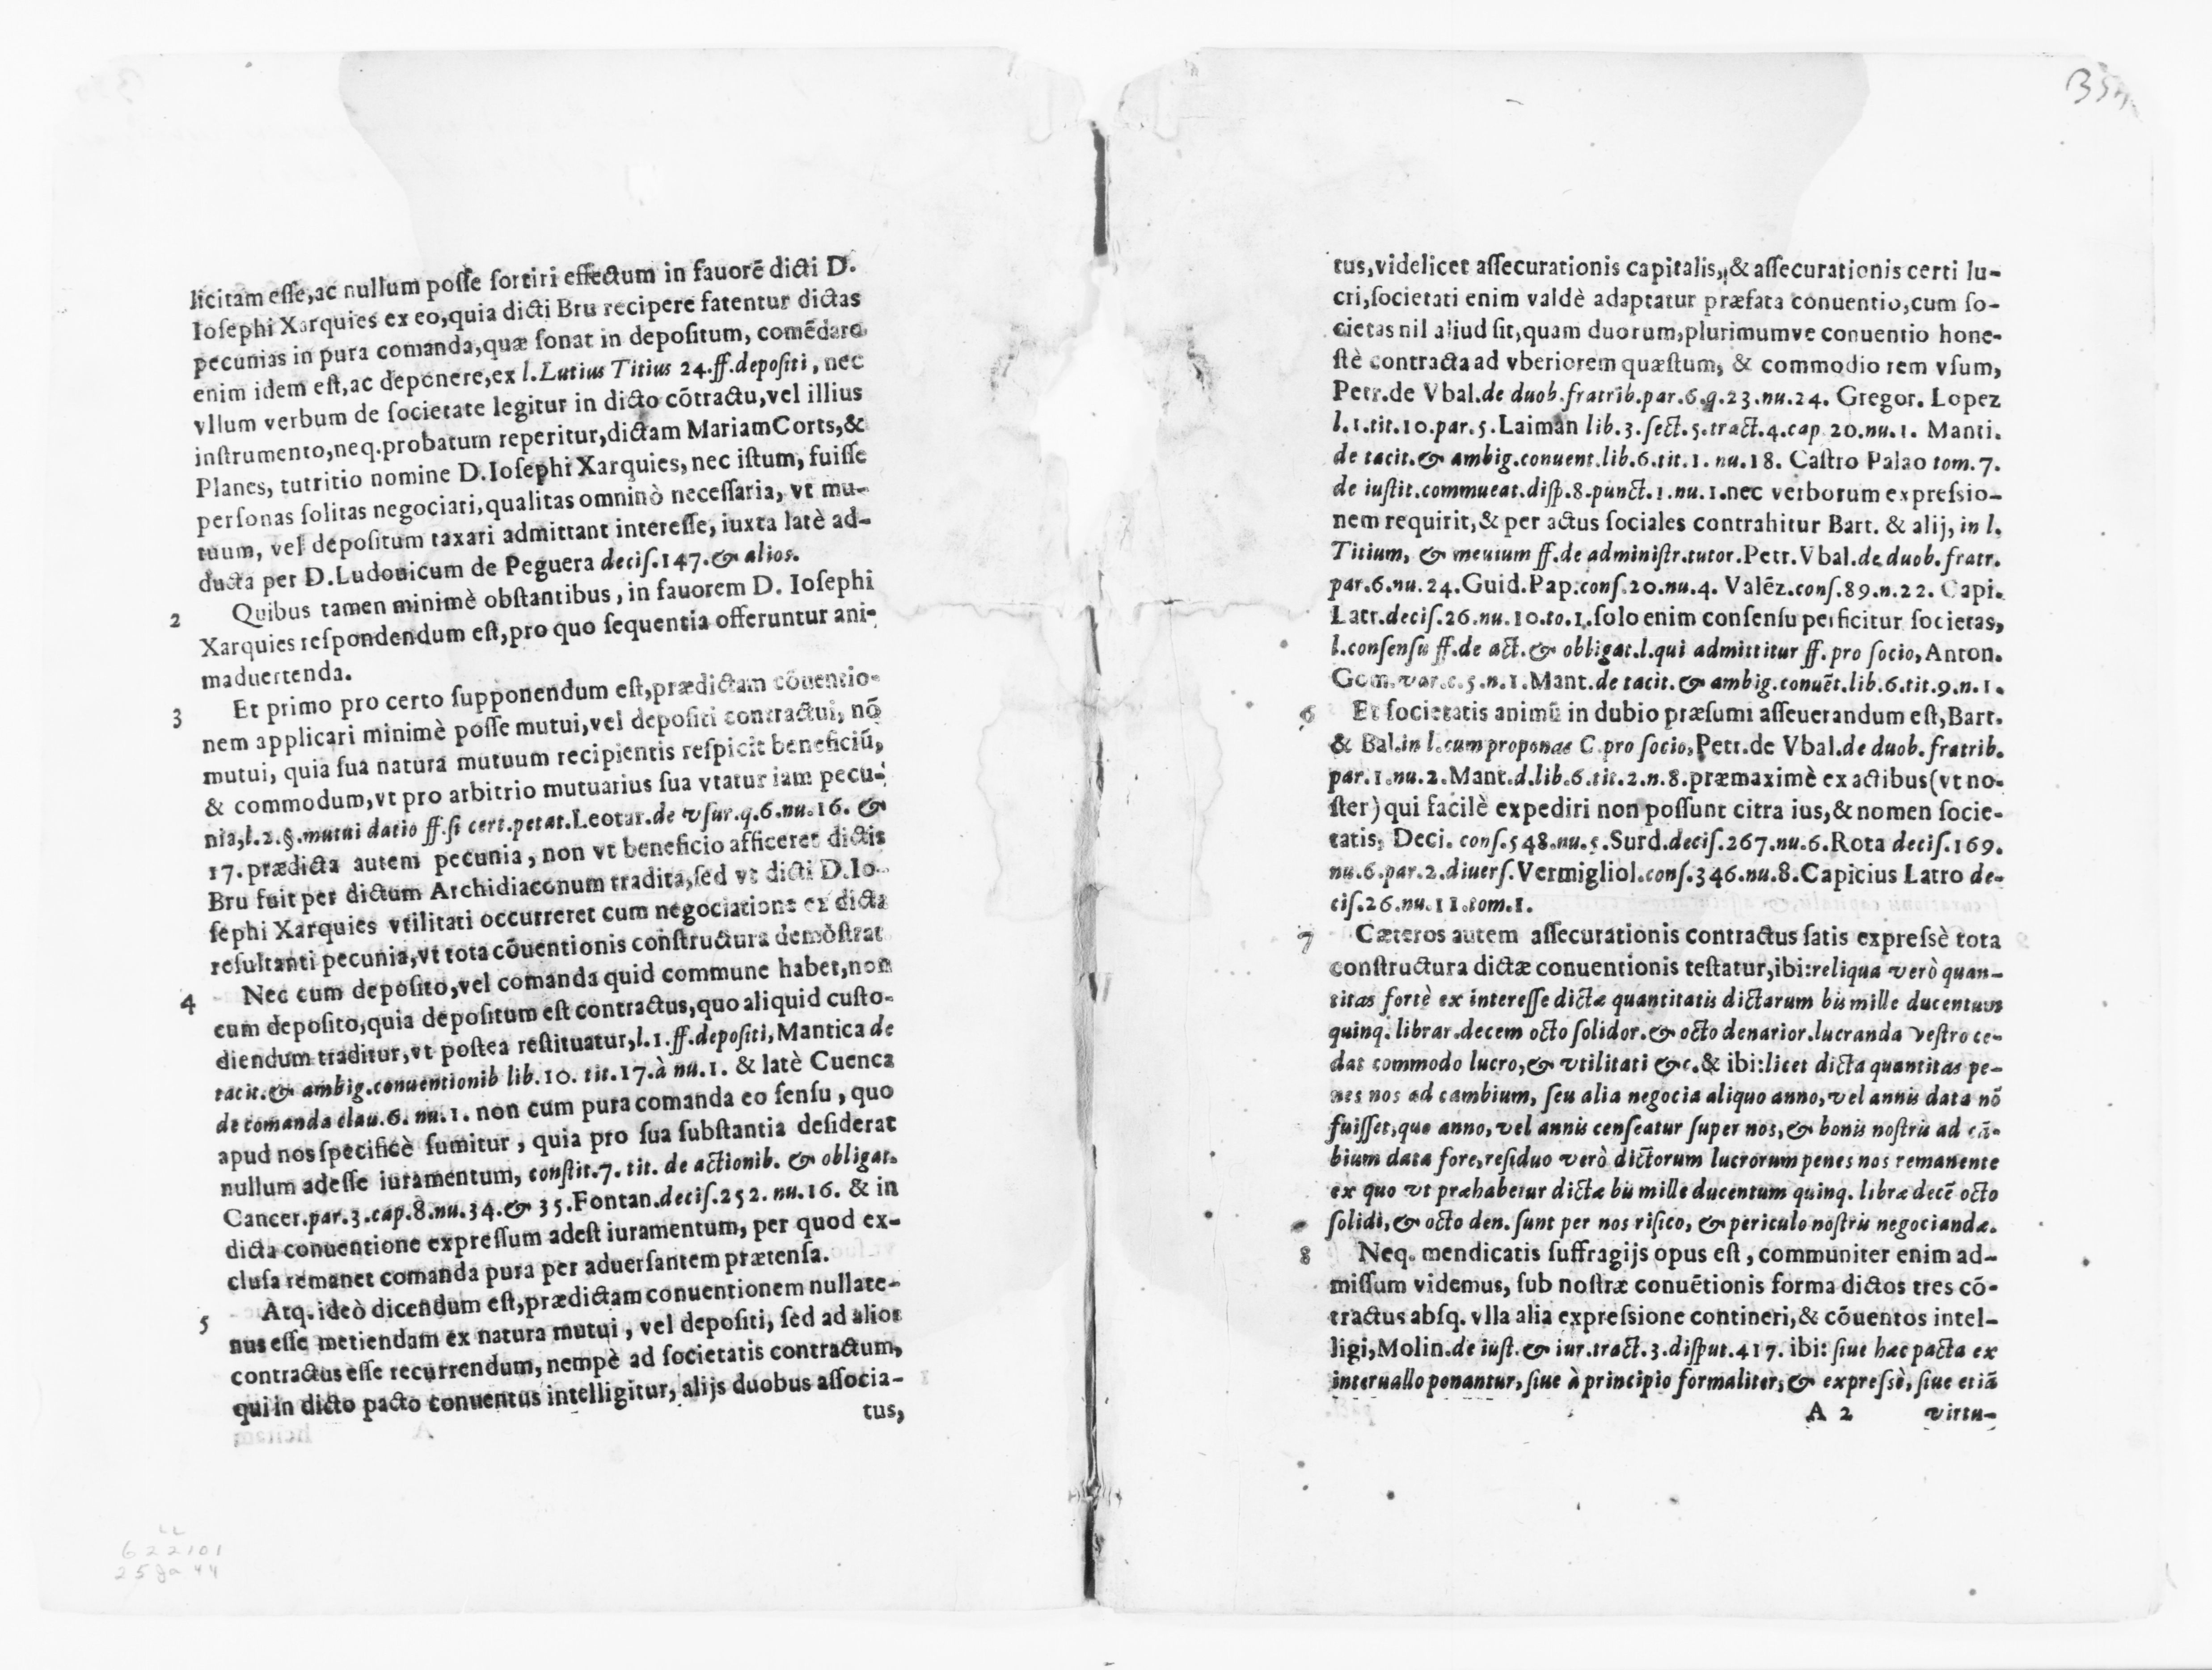 licitam esse, ac nullum posse sortiri effectum in fauorē dicti D.
Iosephi Xarquies ex eo, quia dicti Bru recipere fatentur dictas
pecunias in pura comanda, quæ sonat in depositum, comēdare
enim idem est, ac deponere, ex l. Lutius Titius 24. ff. depositi, nec
vllum verbum de societate legitur in dicto cōtractu, vel illius
instrumento, neq. probatum reperitur, dictam Mariam Corts, &
Planes, tutritio nomine D. Iosephi Xarquies, nec istum, fuisse
personas solitas negociari, qualitas omninò necessaria, vt mu-
tuum, vel depositum taxari admittant interesse, iuxta latè ad-
ducta per D. Ludouicum de Peguera decis. 147. & alios.
2 Quibus tamen minimè obstantibus, in fauorem D. Iosephi
Xarquies respondendum est, pro quo sequentia offeruntur ani-
maduertenda.
3 Et primo pro certo supponendum est, prædictam cōuentio-
nem applicari minimè posse mutui, vel depositi contractui, nō
mutui, quia sua natura mutuum recipientis respicit beneficiū,
& commodum, vt pro arbitrio mutuarius sua vtatur iam pecu-
nia, l. 2. §. mutui datio ff. si cert. petat. Leotar. de vsur. q. 6. nu. 16. &
17. prædicta autem pecunia, non vt beneficio afficeret dictis
Bru fuit per dictum Archidiaconum tradita, sed vt dicti D. Io-
sephi Xarquies vtilitati occurreret cum negociatione ex dicta
resultanti pecunia, vt tota cōuentionis constructura demōstrat
4 Nec cum deposito, vel comanda quid commune habet, non
cum deposito, quia depositum est contractus, quo aliquid custo-
diendum traditur, vt postea restituatur, l. 1. ff. depositi, Mantica de
tacit. & ambig. conuentionib lib. 10. tit. 17. à nu. 1. & latè Cuenca
de comanda clau. 6. nu. 1. non cum pura comanda eo sensu, quo
apud nos specificè sumitur, quia pro sua substantia desiderat
nullum adesse iuramentum, constit. 7. tit. de actionib. & obligat.
Cancer. par. 3. cap. 8. nu. 34. & 35. Fontan. decis. 252. nu. 16. & in
dicta conuentione expressum adest iuramentum, per quod ex-
clusa remanet comanda pura per aduersantem prætensa.
5 Atq. ideò dicendum est, prædictam conuentionem nullate-
nus esse metiendam ex natura mutui, vel depositi, sed ad alios
contractus esse recurrendum, nempè ad societatis contractum,
qui in dicto pacto conuentus intelligitur, alijs duobus associa-
tus,
tus, videlicet assecurationis capitalis, & assecurationis certi lu-
cri, societati enim valdè adaptatur præfata conuentio, cum so-
cietas nil aliud sit, quam duorum, plurimumve conuentio hone-
stè contracta ad vberiorem quæstum, & commodio rem vsum,
Petr. de Vbal. de duob. fratrib. par. 6. q. 23. nu. 24. Gregor. Lopez
l. 1. tit. 10. par. 5. Laiman lib. 3. sect. 5. tract. 4. cap 20. nu. 1. Manti.
de tacit. & ambig. conuent. lib. 6. tit. 1. nu. 18. Castro Palao tom. 7.
de iustit. commueat. disp. 8. punct. 1. nu. 1. nec verborum expressio-
nem requirit, & per actus sociales contrahitur Bart. & alij, in l.
Titium, & meuium ff. de administr. tutor. Petr. Vbal. de duob. fratr.
par. 6. nu. 24. Guid. Pap. cons. 20. nu. 4. Valēz. cons. 89. n. 22. Capi.
Latr. decis. 26. nu. 10. to. 1. solo enim consensu perficitur societas,
l. consensu ff. de act. & obligat. l. qui admittitur ff. pro socio, Anton.
Gom. var. c. 5. n. 1. Mant. de tacit. & ambig. conuēt. lib. 6. tit. 9. n. 1.
6 Et societatis animū in dubio præsumi asseuerandum est, Bart.
& Bal. in l. cum proponas C. pro socio, Petr. de Vbal. de duob. fratrib.
par. 1. nu. 2. Mant. d. lib. 6. tit. 2. n. 8. præmaximè ex actibus (vt no-
ster) qui facilè expediri non possunt citra ius, & nomen socie-
tatis, Deci. cons. 548. nu. 5. Surd. decis. 267. nu. 6. Rota decis. 169.
nu. 6. par. 2. diuers. Vermigliol. cons. 346. nu. 8. Capicius Latro de-
cis. 26. nu. 11. tom. 1.
7 Cæteros autem assecurationis contractus satis expressè tota
constructura dictæ conuentionis testatur, ibi: reliqua verò quan-
titas fortè ex interesse dictæ quantitatis dictarum bis mille ducentum
quinq. librar. decem octo solidor. & octo denarior. lucranda vestro ce-
dat commodo lucro, & vtilitati &c. & ibi: licet dicta quantitas pe-
nes nos ad cambium, seu alia negocia aliquo anno, vel annis data nō
fuisset, quo anno, vel annis censeatur super nos, & bonis nostris ad cā-
bium data fore, residuo verò dictorum lucrorum penes nos remanente
ex quo vt præhabetur dictæ bis mille ducentum quinq. libræ decē octo
solidi, & octo den. sunt per nos risico, & periculo nostris negociandæ.
8 Neq. mendicatis suffragijs opus est, communiter enim ad-
missum videmus, sub nostræ conuētionis forma dictos tres cō-
tractus absq. vlla alia expressione contineri, & cōuentos intel-
ligi, Molin. de iust. & iur. tract. 3. disput. 417. ibi: siue hac pacta ex
interuallo ponantur, siue à principio formaliter, & expressè, siue etiā
A 2 virtu-